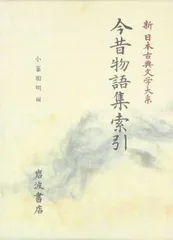 新日本古典文学大系
今昔物語集索引
小峯和明 編
岩波書店